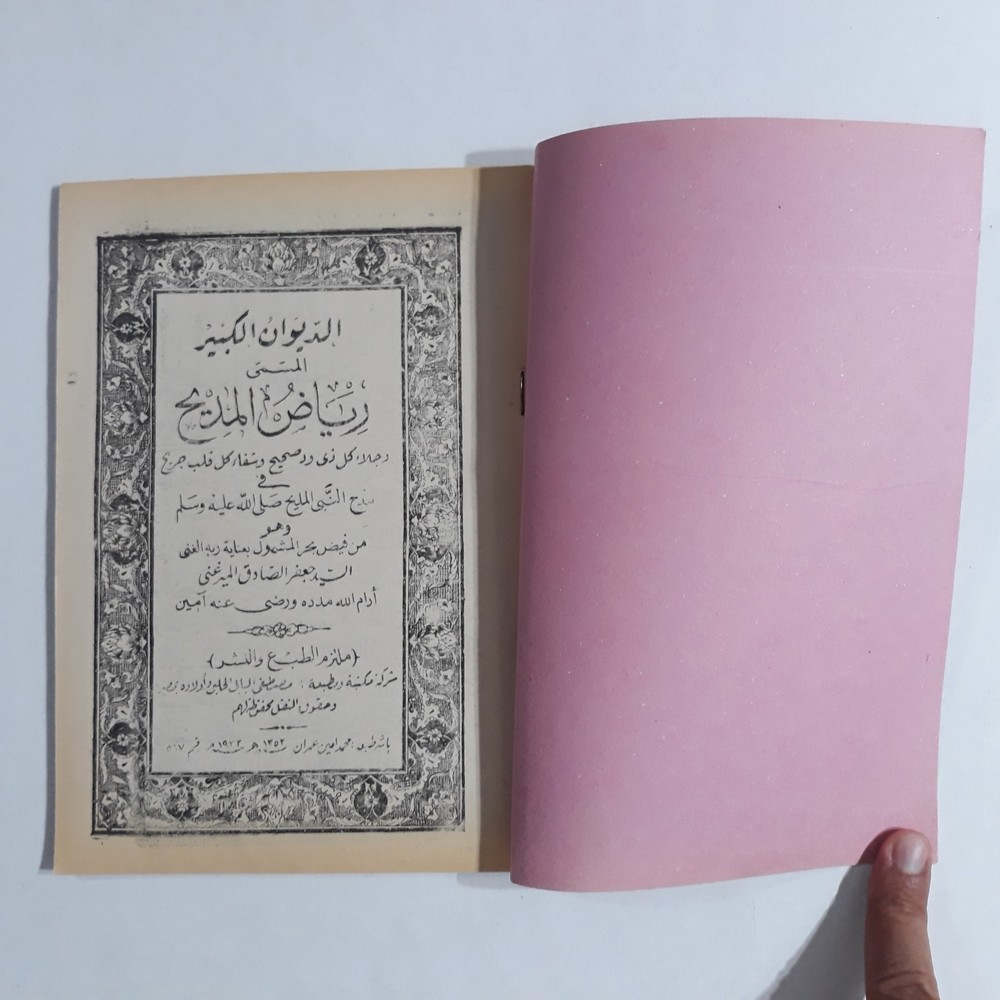 الدّيوَانُ الكَبيْر
المسَمى
رِيَاضُ المَدِيْح
وجلاء كل ذى ود صحيح وشفاء كل قلب جريح
في
مدح النَّبى المليح صَلى اللّه عَليْه وَسَلم
وهو
من فيض بحر المشمول بعناية ربه الغنى
السّيد جعفر الصَّادق الميرغنى
أدام الله مدده ورضى عنه آمين
﴿ملتزم الطبع والنشر﴾
شركة مكتبة ومطبعة : مصطفى البابى الحلبى وأولاده بمصر
وحقوق النقل محفوظة لهم
باشر طبعه : محمد أمين عمران ١٣٥٢ هـ ١٩٣٣ م